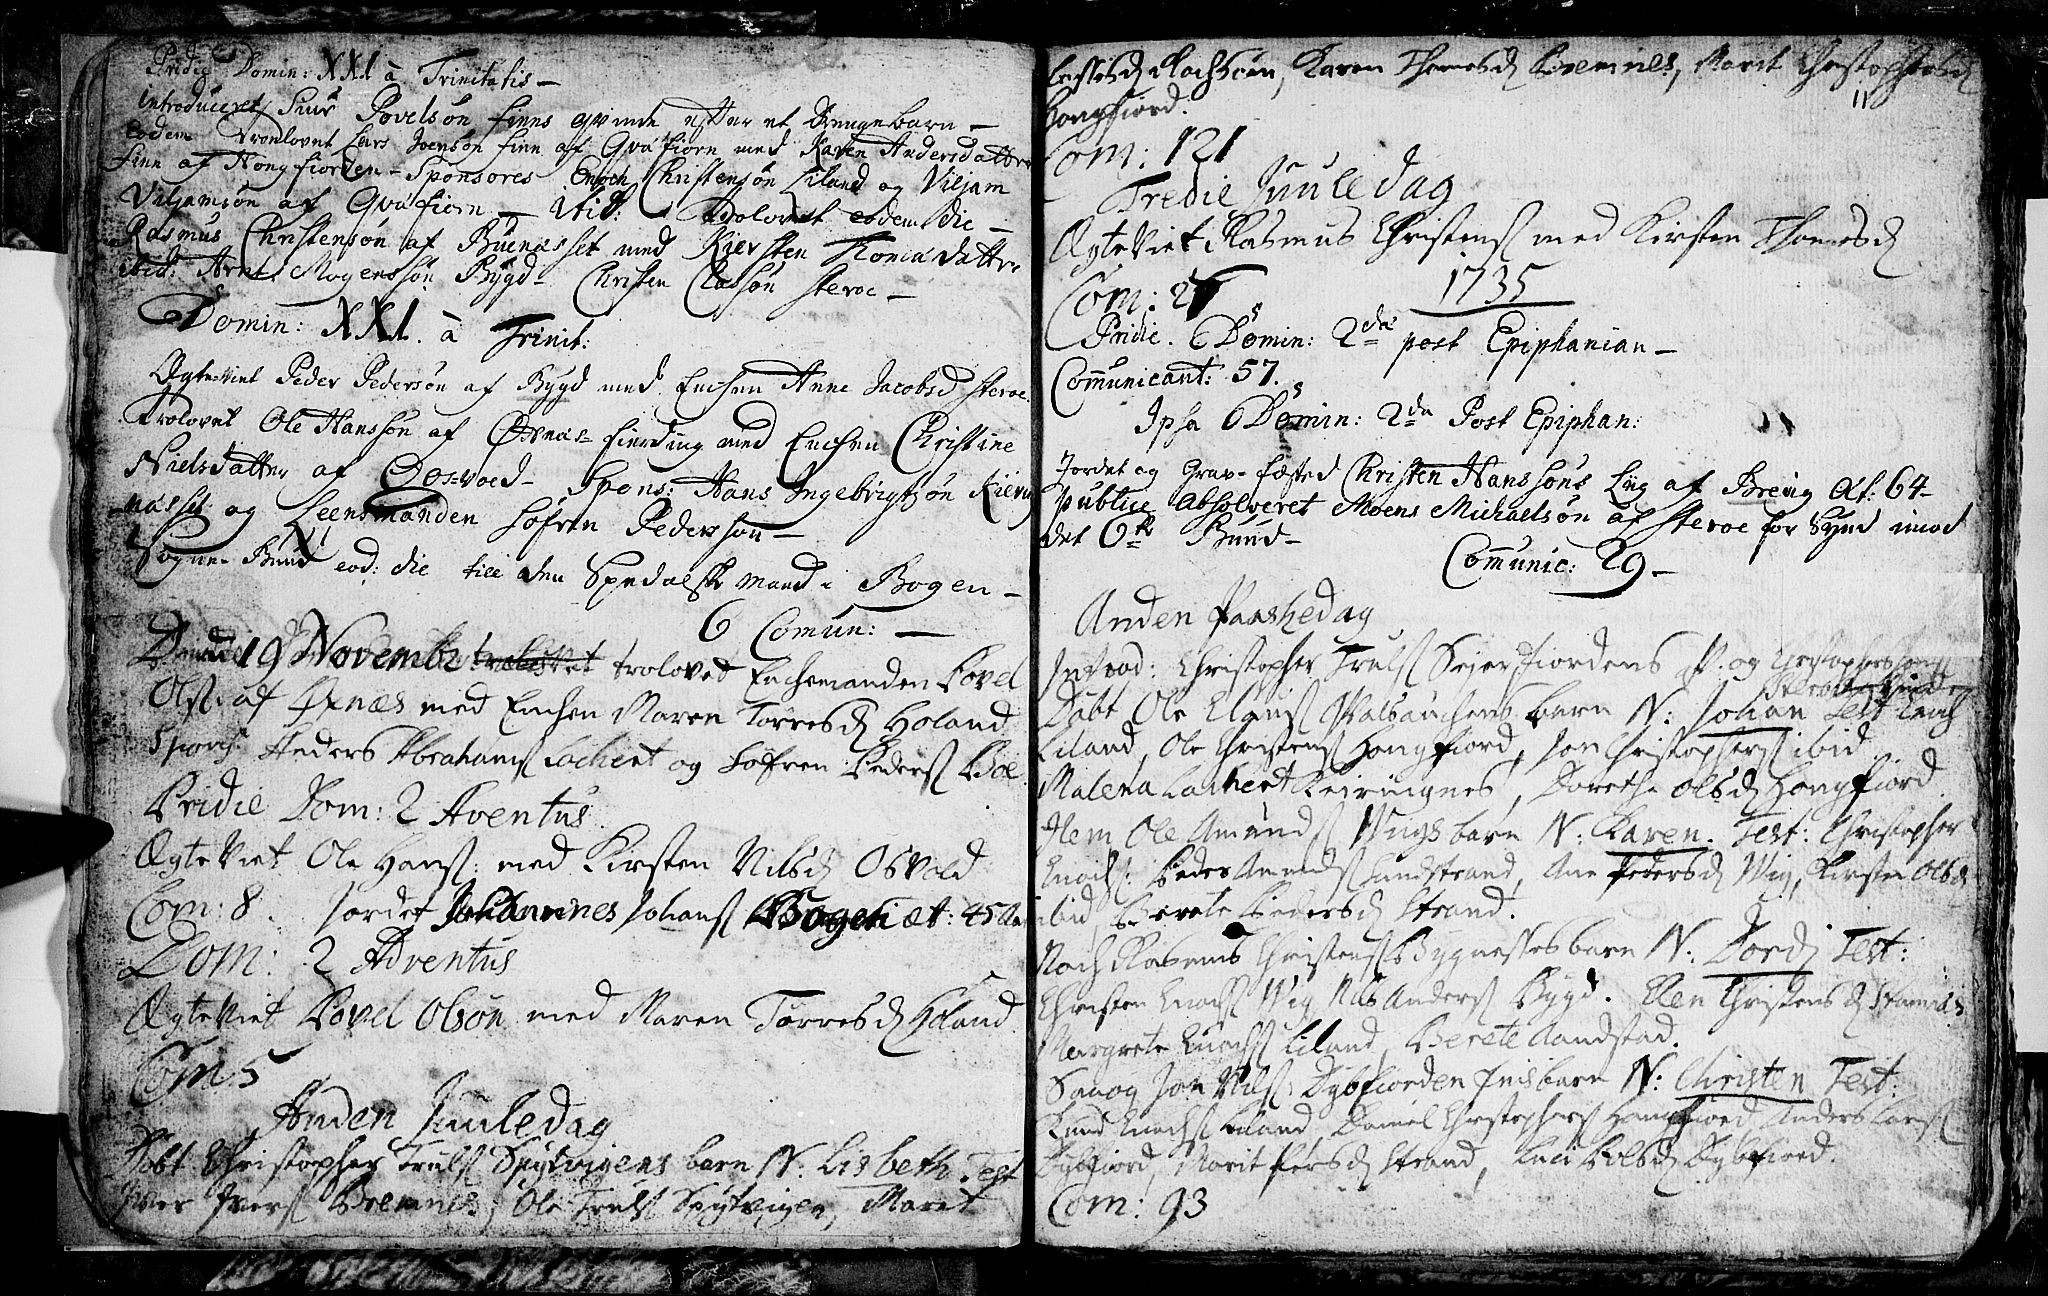 Pridie Domin: XXI à Trinitatis –
Introduceret Siur Povelsøn Finns qvinde efter et Drengebarn –
eodem Troelovet Lars Joensøn Finn af Qvæfiorn med Karen Andersdatter
Finn af Kongfiorden – Sponsores Enoch Christensøn Liland og Viljam
Viljamsøn af Qvæfiorn – ibid: Trolovet eodem die –
Rasmus Christensøn af Buenæsset med Kiersten Thomædatter
ibid: Arnt Mogenssøn Bygd – Christen Classøn steroe –
Domin: XXI. à Trinit:
Ægteviet Peder Pedersøn af Bygd med Enchen Anne Jacobsd steroe.
Trolovet Ole Hanssøn af Øxnæs-fierding med Enchen Christine
Nielsdatter af Oos-voed – Spons: Hans Ingebrigtsøn Kiering
næsset og Leensmanden Sofren Pedersson –
Sogne-Bud eod: die till den Spedalske mand i Bogen –
6 Comun: –
19 Novembr trolovet Enchemanden Povel
Ols: af Øxnæs med Enchen Maren Torresd Holand
Spons: Anders Abrahams Lochert og Sofren Peders Bøe
Pridie Dom: 2 Aventus
Ægteviet Ole Hans: med Kirsten Nilsd Osvold
Com: 8. Jordet Johannes Johans Bogen æt: 45 An
Dom: 2 Adventus
Ægteviet Povel Olsøn med Maren Torresd Holand
Com: 5
Anden Juuledag
Døbt Christopher Truls Spytvigens barn N: Lisbeth. Test
Iver Ivers Bremnes, Ole Truls Spytvigen, Maret
11
Karen Thomesd Bremnes, Marit Christophersd
Hongfiord.
Com: 121
Tredie Juuledag
Ægteviet Rasmus Christens med Kirsten Thomesd
1735
Com: 27
Pridie. Domin: 2da post Epiphanian –
Communicant: 57.
Ipsa Domin: 2da Post Epiphan:
Jordet og Grav-fæsted Christen Hanssøns Liig af Breivig Æt: 64 –
publice Absolveret Moens Michaelsøn af steroe for Synd imod
det 6te Buud –
Communic: 29 –
Anden Paaskedag
Introd: Christopher Truls Sejerfiordens q. og Christophers
Døbt Ole Clauss barn N: Johan Test
Liland, Ole Christens Hongfiord, Jon Christophers ibid
Malena Lochert Keiringnes, Dorethe Olsd Hongfiord
Item Ole Amunds Wiigs barn N: Karen. Test: Christopher
Enochs: Peder Amunds sundstrand, Ane Pedersd Wig, Kirsten Olsd
ibid, Berete Pedersd Strand.
Noch Rasmus Christens Bygnesses barn N: Dordi Test:
Christen Enochs Wig Nils Anders Bygd. Elen Christensd
Margrete Enochs Liland, Berete Aandstad.
Jon Nils: Dybfiorden Finsbarn N: Christen Test:
Liland, Daniel Christophers Hongfiord Anders Lars
Dybfiord, Marit Persd Strand, Dybfiord.
Com: 93